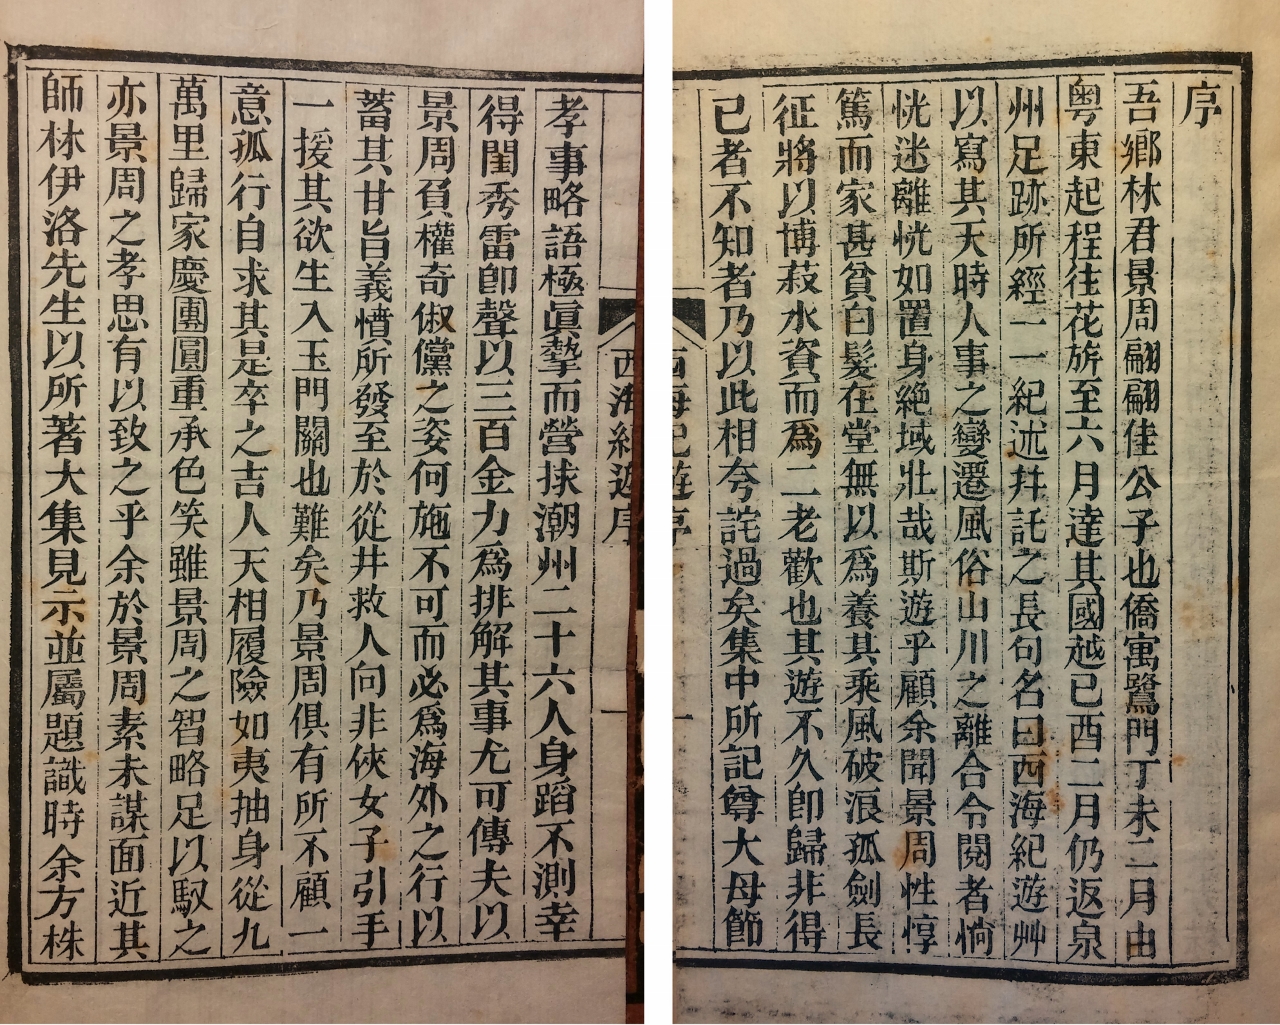 序
吾鄉林君景周翩翩佳公子也僑寓鷺門丁未二月由
粵東起程往花旂至六月達其國越已酉二月仍返泉
州足跡所經一一紀述幷託之長句名曰西海紀遊艸
以寫其天時人事之變遷風俗山川之離合令閱者惝
恍迷離恍如置身絕域壯哉斯遊乎顧余聞景周性惇
篤而家甚貧白髮在堂無以爲養其乘風破浪孤劍長
征將以博菽水資而爲二老歡也其遊不久卽歸非得
已者不知者乃以此相夸詫過矣集中所記尊大母節
西海紀遊序
一
西海紀遊序
一
孝事略語極眞摯而營捄潮州二十六人身蹈不測幸
得閨秀雷卽聲以三百金力爲排解其事尤可傳夫以
景周負權奇俶儻之姿何施不可而必爲海外之行以
蓄其甘旨義憤所發至於從井救人向非俠女子引手
一援其欲生入玉門關也難矣乃景周俱有所不顧一
意孤行自求其是卒之吉人天相履險如夷抽身從九
萬里歸家慶團圓重承色笑雖景周之智略足以馭之
亦景周之孝思有以致之乎余於景周素未謀面近其
師林伊洛先生以所著大集見示並屬題識時余方株